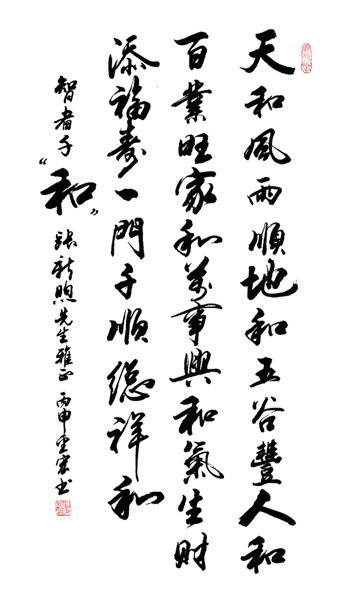 天和風雨順地和五谷豐人和
百業旺家和萬事興和氣生財
添福壽一門子順總祥和
智者于“和”張新煦先生雅正丙申宏书